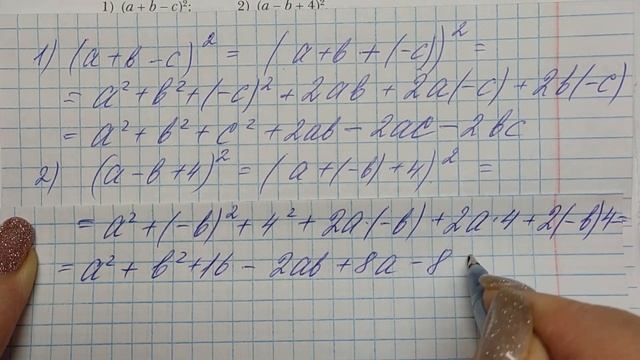 1) (a + b – c)²;    2) (a – b + 4)²
1) (a+b-c)² = (a+b+(-c))² =
= a²+b²+(-c)²+2ab+2a(-c)+2b(-c)
= a²+b²+c²+2ab-2ac-2bc
2) (a-b+4)² = (a+(-b)+4)² =
= a²+(-b)²+4²+2a·(-b)+2a·4+2(-b)4=
= a²+b²+16-2ab+8a-8